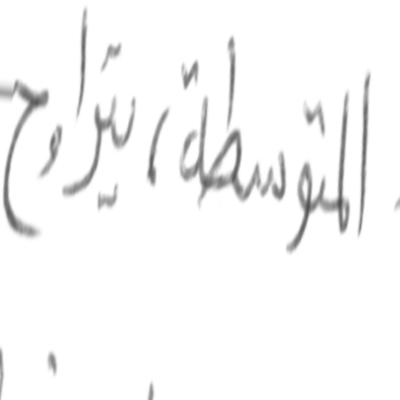 المتوسطة، يتراوح